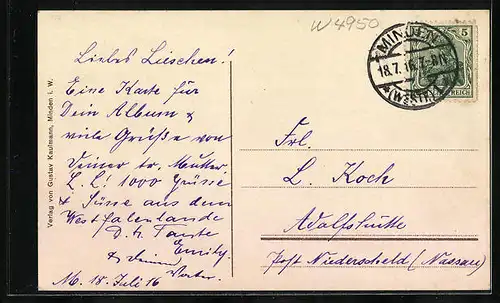 W 4950
MINDEN
18.7.16. 7-8N.
*(WESTF.)
5
REICH
Liebes Lieschen!
Eine Karte für
Dein Album &
viele Grüße von
Deiner tr. Mutter.
L. L! 1000 Grüsse
& Küsse aus dem
Westfalenlande
D. tr. Tante
Emily.
M. 18. Juli 16
Frl.
L. Koch
Adolfshütte
Post Niederscheld (Nassau)
Verlag von Gustav Kaufmann, Minden i. W.